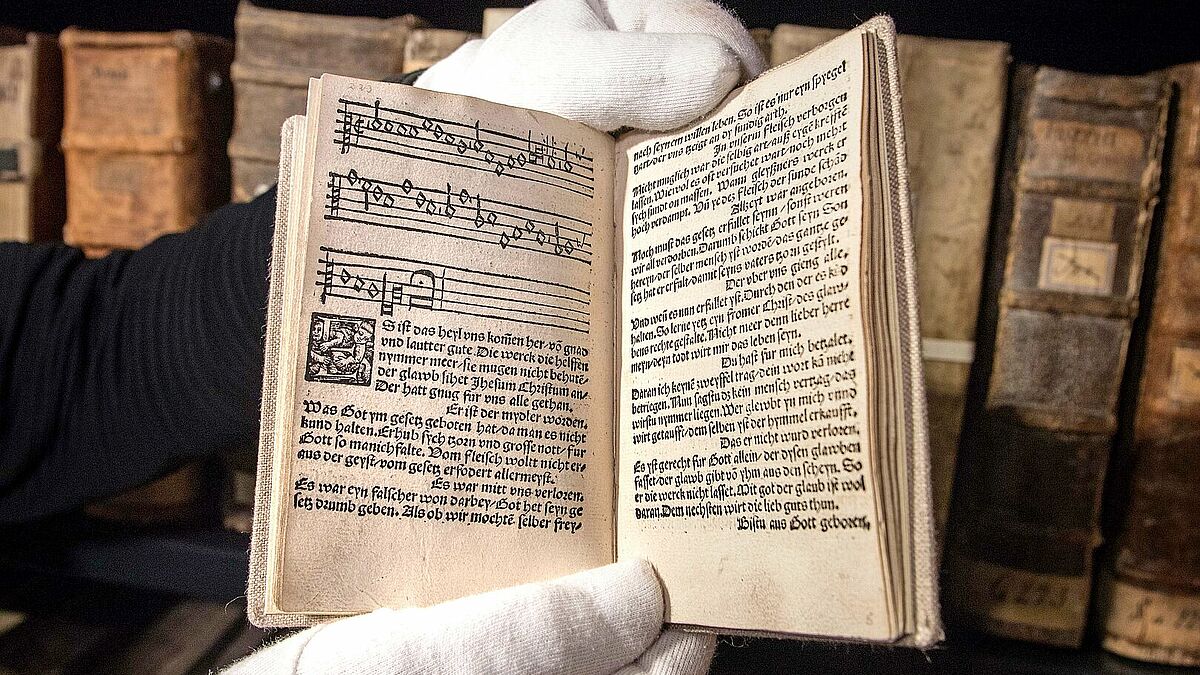 S ist das heyl vns kom̃en her, võ gnad
vnd lautter gute. Die werck die helffen
nymmer meer, sie mugen nicht behutẽ,
der glawb sihet Jhesum Christum an,
Der hatt gnug für vns alle gethan,
Er ist der mydler worden.
Was Got ym gesetz geboten hat, da man es nicht
kund halten. Erhub sych tzorn vnd grosse nott, fur
Gott so manichfalte. Vom fleisch wollt nicht er-
aus der geyst, vom gesetz erfodert allermeyst.
Es war mitt vns verloren.
Es war eyn falscher won darbey, Got het seyn ge
setz drumb geben. Als ob wir mochtẽ selber frey,
nach seynem willen leben. So ist es nur eyn spyegel
zart, der vns tzeigt an dy sundig arth,
In vnserm fleisch verborgen
Nicht muglich war die selbig art, auß eygẽ krefftẽ
lassen. Wie wol es oft versuchet wart, noch mehrt
sych sund on massen. Wann gleyßners werck er
hoch verdampt. Vñ ye dez fleisch der sunde schãd,
Allzeyt war angeboren.
Noch must das gesetz erfullet seyn, sonst weren
wir all verdorben. Darumb schickt Gott seyn Son
hereyn, der selber mensch yst wordẽ, das gantze ge
setz hat er erfult, damit seyns vaters tzorn gestylt.
Der vber vns gieng alle,
Vnd weñ es nun erfullet yst. Durch den der es kũd
halten. So lerne yetz eyn fromer Christ, des glaw-
bens rechte gestalte. Nicht meer denn lieber herre
meyn, deyn todt wirt mir das leben seyn.
Du hast für mich betzalet.
Daran ich keynẽ zweyffel trag, dein wort kã nicht
betriegen. Nun sagstu dz kein mensch vertzag, das
wirstu nymmer liegen. Wer glewbt yn mich vnnd
wirt getaufft, dem selben yst der hymmel erkaufft.
Das er nicht wurd verloren.
Es yst gerecht für Gott allein, der dysen glawben
fasset, der glawb gibt võ yhm aus den scheyn. So
er die werck nicht lasset. Mit got der glaub ist wol
daran. Dem nechsten wirt die lieb guts thun.
Bistu aus Gott geboren,